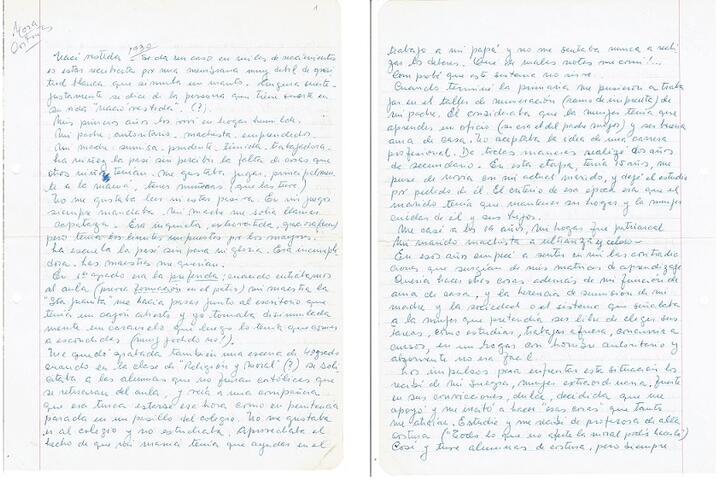 1
1930
Nací vestida - Se da un caso en miles de nacimientos
es estar recubierta por una membrana muy débil de
blanca que simula un manto. Ninguna suerte
justamente se dice de la persona que tiene suerte en
su vida "nació vestida". (?)
Mis primeros años los viví en hogar humilde.
Mi padre, autoritario, machista, emprendedor.
Mi madre sumisa, prudente, tímida, trabajadora.
La niñez la pasé sin percibir la falta de cosas que
otros niños tenían. Me gustaba jugar, principalmen-
te a la mamá, tener muñecas (que las tuve)
No me gustaba leer ni estar pasiva. En mis juegos
siempre mandaba. Mi madre me solía llamar
capataza. Era inquieta, extrovertida,
pero tenía los límites impuestos por los mayores.
La escuela la pasé sin pena ni gloria. Era
dora. Las maestras me querían.
En 1º grado era la preferida; cuando entrábamos
al aula (previa formación en el patio) mi maestra la
"Sta Juanita" me hacía pasar junto al escritorio que
tenía un cajón abierto y yo tomaba disimulada
mente un caramelo que luego lo tenía que comer
a escondidas (muy jodido no?).
Me quedó grabada también una escena de 4º grado
cuando en la clase de "Religión y moral" (?) se soli
citaba a las alumnas que no fueran católicas que
se retiraran del aula, y veía a una compañera
que era turca estarse esa hora como en penitencia
parada en un pasillo del colegio. No me gustaba
ir al colegio y no estudiaba. Aprovechaba el
hecho de que mi mamá tenía que ayudar en el
trabajo a mi papá y no me sentaba nunca a reali
zar los deberes. Qué malas notas me comí!...
Comprobé que este sistema no sirve.
Cuando terminé la primaria me pusieron a traba
jar en el taller de numeración (ramo de imprenta) de
mi padre. Él consideraba que la mujer tenía que
aprender un oficio (si era el del padre mejor) y ser buena
ama de casa. No aceptaba la idea de una carrera
profesional. De todas maneras realicé dos años
de secundario. En esta etapa, tenía 15 años, me
puse de novia con mi actual marido, y dejé el estudio
por pedido de él. El criterio de esa época era que el
marido tenía que mantener su hogar y la mujer
cuidar de él y sus hijos.
Me casé a los 19 años, mi hogar fue patriarcal
Mi marido machista a ultranza y celoso.
En esos años empecé a sentir en mí las contradic
ciones que surgían de mis matrices de aprendizaje
Quería hacer otras cosas además de mi función de
ama de casa, y la herencia de sumisión de mi
madre y la sociedad o el sistema que señalaba
a la mujer que pretendía ser libre de elegir sus
tareas, como estudiar, trabajar afuera, concurrir a
cursos, en un hogar con hombre autoritario y
absorvente no era fácil.
Los impulsos para enfrentar esta situación los
recibí de mi suegra, mujer extraordinaria, fuerte
en sus convicciones, dulce, decidida que me
apoyó y me incitó a hacer "esas cosas" que tanto
me atraían. Estudié y me recibí de profesora de alta
costura ("Todo lo que no afecte la moral podés hacerlo")
Cosí y tuve alumnas de costura, pero siempre